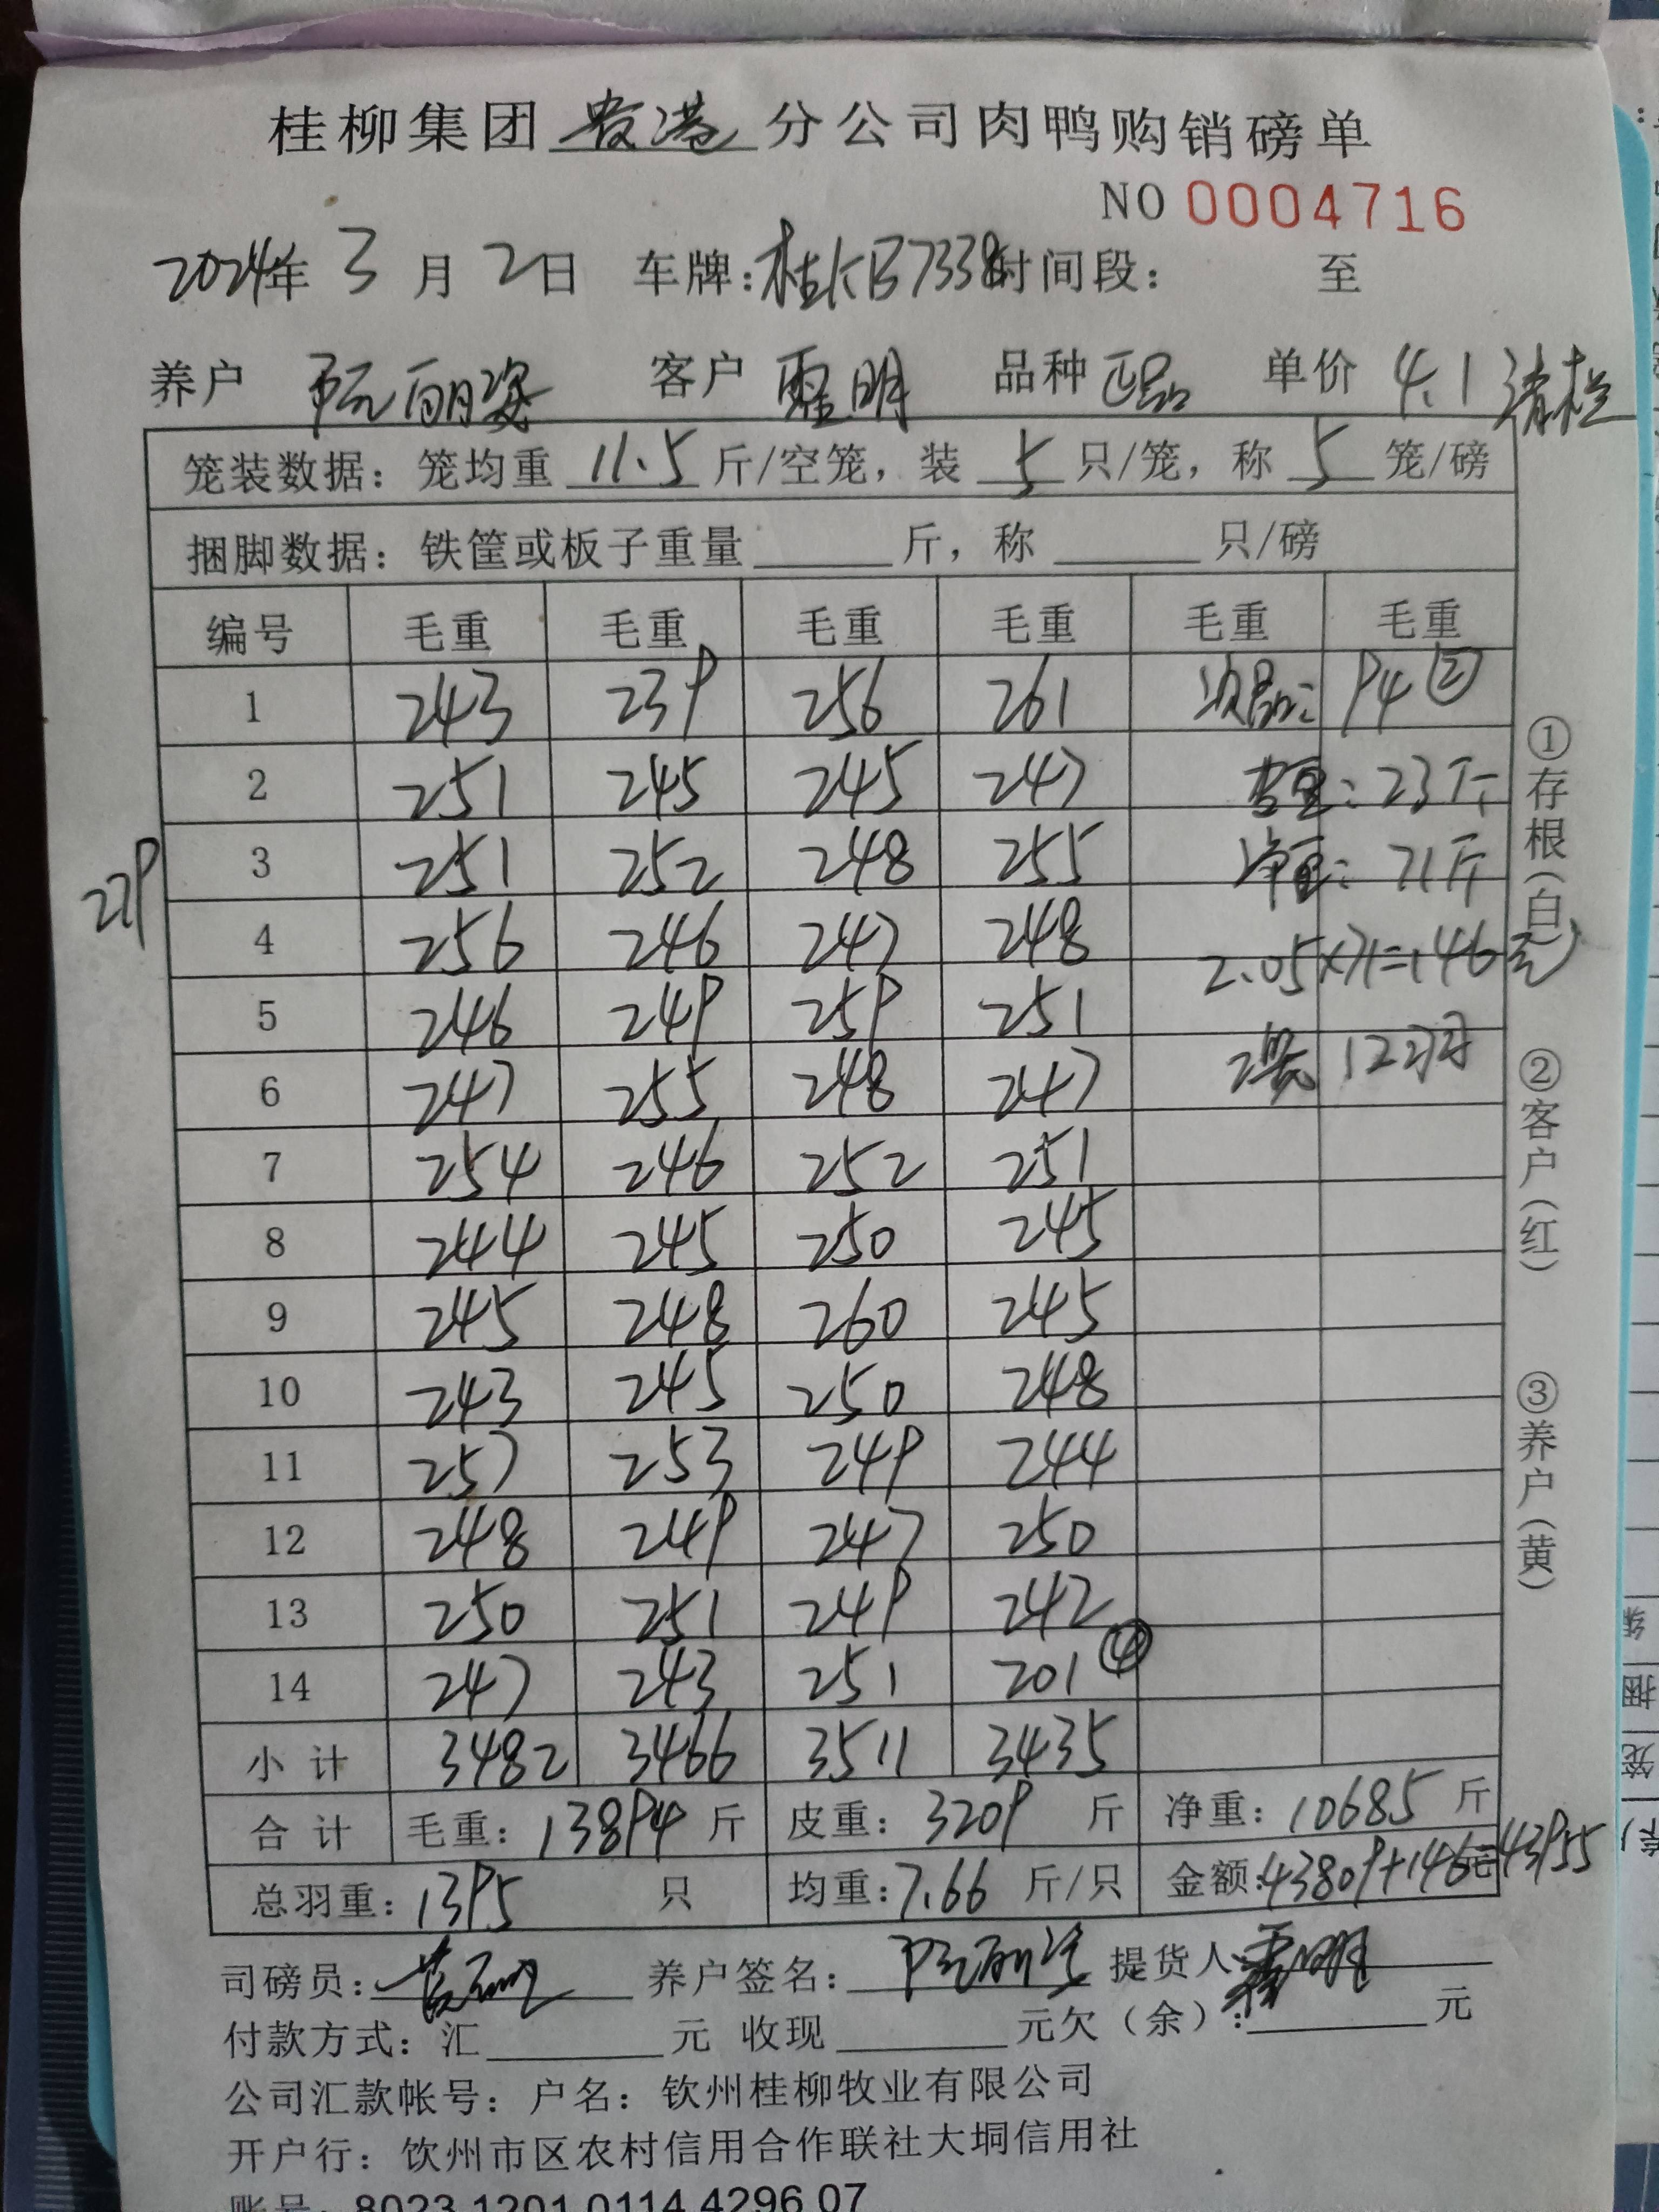 桂柳集团 贵港 分公司肉鸭购销磅单
NO 0004716
2024年 3 月 2 日 车牌:桂KB7338 时间段: 至
养户 阮丽姿 客户 雷明 品种 正品 单价 4.1 清栏
笼装数据: 笼均重 11.5 斤/空笼, 装 5 只/笼, 称 5 笼/磅
捆脚数据: 铁筐或板子重量 斤, 称 只/磅
编号 毛重 毛重 毛重 毛重 毛重 毛重
1 243 239 256 261 次品: 94 ②
2 251 245 245 247 毛重: 23斤
3 251 252 248 255 净重: 71斤
279
4 256 246 247 248 2.05×71=146元
5 246 249 259 251
6 247 255 248 247 12羽
7 254 246 252 251
8 244 245 250 245
9 245 248 260 245
10 243 245 250 248
11 257 253 249 244
12 248 249 247 250
13 250 251 249 242
14 247 243 251 201 ④
小计 3482 3466 3511 3435
合计 毛重: 13894 斤 皮重: 3209 斤 净重: 10685 斤
总羽重: 1395 只 均重: 7.66 斤/只 金额: 43809+146=43955 元
司磅员: 养户签名: 阮丽姿 提货人: 雷明
付款方式: 汇 元 收现 元欠（余）: 元
公司汇款帐号: 户名: 钦州桂柳牧业有限公司
开户行: 钦州市区农村信用合作联社大垌信用社
账号: 8023 1201 0114 4296 07
①存根（白）
②客户（红）
③养户（黄）